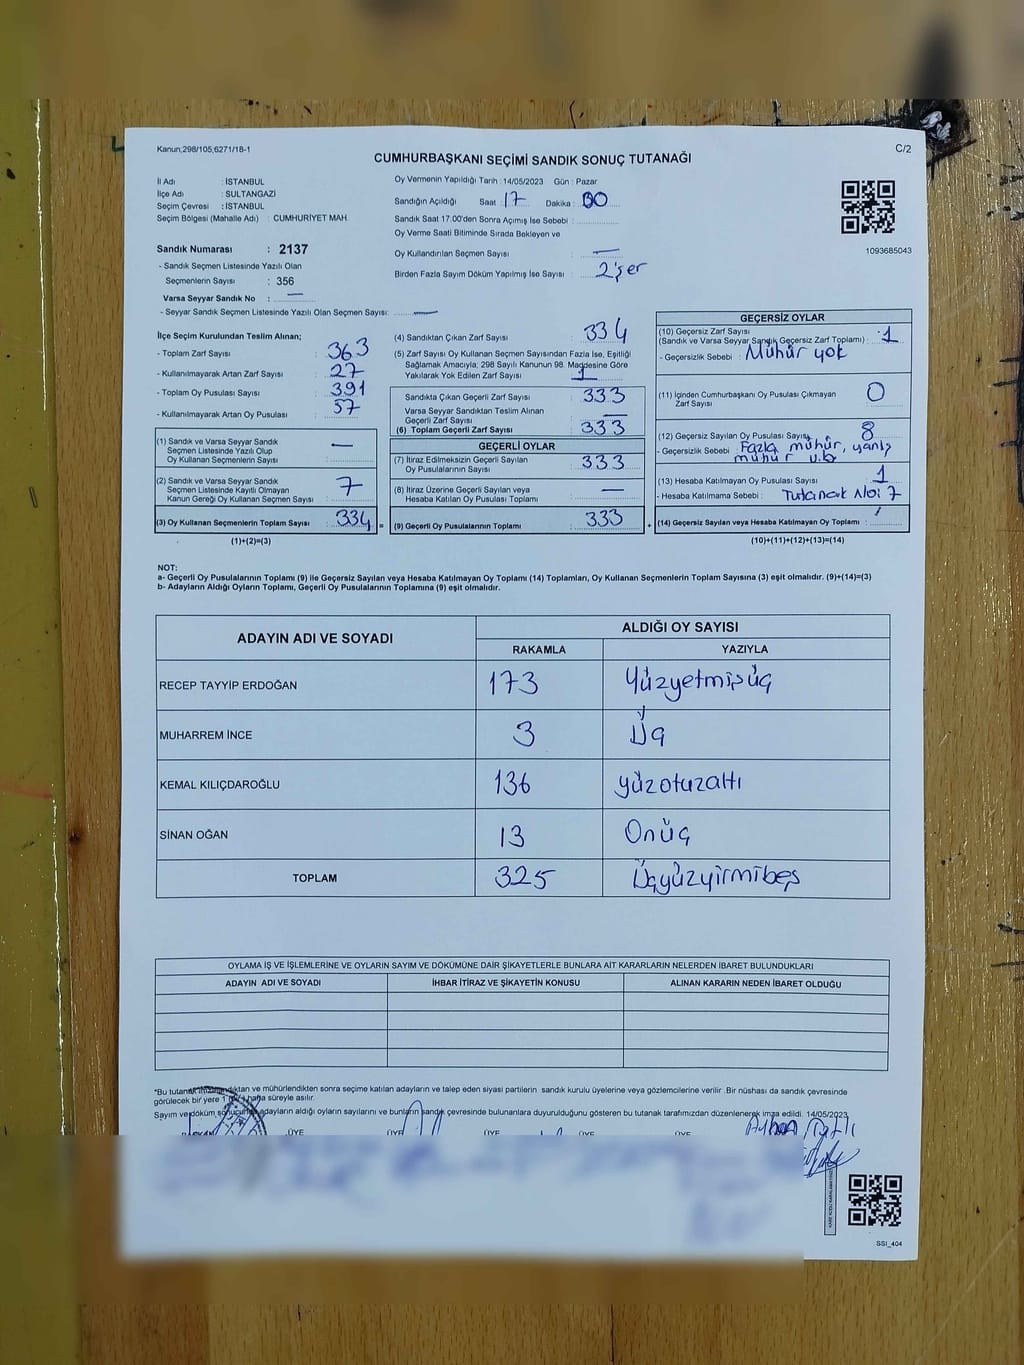 Kanun,298/105,6271/18-1
C/2
CUMHURBAŞKANI SEÇİMİ SANDIK SONUÇ TUTANAĞI
İl Adı : İSTANBUL
İlçe Adı : SULTANGAZİ
Seçim Çevresi : İSTANBUL
Seçim Bölgesi (Mahalle Adı) : CUMHURİYET MAH.
Sandık Numarası : 2137
- Sandık Seçmen Listesinde Yazılı Olan
Seçmenlerin Sayısı : 356
Varsa Seyyar Sandık No : —
- Seyyar Sandık Seçmen Listesinde Yazılı Olan Seçmen Sayısı: —
Oy Vermenin Yapıldığı Tarih : 14/05/2023 Gün : Pazar
Sandığın Açıldığı Saat : 17 Dakika : 00
Sandık Saat 17.00'den Sonra Açılmış İse Sebebi :
Oy Verme Saati Bitiminde Sırada Bekleyen ve
Oy Kullandırılan Seçmen Sayısı : —
Birden Fazla Sayım Döküm Yapılmış İse Sayısı : 2'şer
1093685043
İlçe Seçim Kurulundan Teslim Alınan;
- Toplam Zarf Sayısı : 363
- Kullanılmayarak Artan Zarf Sayısı : 27
- Toplam Oy Pusulası Sayısı : 391
- Kullanılmayarak Artan Oy Pusulası : 57
(1) Sandık ve Varsa Seyyar Sandık
Seçmen Listesinde Yazılı Olup
Oy Kullanan Seçmenlerin Sayısı : —
(2) Sandık ve Varsa Seyyar Sandık
Seçmen Listesinde Kayıtlı Olmayan
Kanun Gereği Oy Kullanan Seçmen Sayısı : 7
(3) Oy Kullanan Seçmenlerin Toplam Sayısı : 334 =
(1)+(2)=(3)
(4) Sandıktan Çıkan Zarf Sayısı : 334
(5) Zarf Sayısı Oy Kullanan Seçmen Sayısından Fazla İse, Eşitliği
Sağlamak Amacıyla; 298 Sayılı Kanunun 98. Maddesine Göre
Yakılarak Yok Edilen Zarf Sayısı : 1
Sandıkta Çıkan Geçerli Zarf Sayısı : 333
Varsa Seyyar Sandıktan Teslim Alınan
Geçerli Zarf Sayısı : —
(6) Toplam Geçerli Zarf Sayısı : 333
GEÇERLİ OYLAR
(7) İtiraz Edilmeksizin Geçerli Sayılan
Oy Pusulalarının Sayısı : 333
(8) İtiraz Üzerine Geçerli Sayılan veya
Hesaba Katılan Oy Pusulası Toplamı : —
(9) Geçerli Oy Pusulalarının Toplamı : 333 +
GEÇERSİZ OYLAR
(10) Geçersiz Zarf Sayısı
(Sandık ve Varsa Seyyar Sandık Geçersiz Zarf Toplamı) : 1
- Geçersizlik Sebebi : Mühür yok
(11) İçinden Cumhurbaşkanı Oy Pusulası Çıkmayan
Zarf Sayısı : 0
(12) Geçersiz Sayılan Oy Pusulası Sayısı : 8
- Geçersizlik Sebebi : Fazla mühür, yanlış
mühür v.b
(13) Hesaba Katılmayan Oy Pusulası Sayısı : 1
- Hesaba Katılmama Sebebi : Tutanak No: 7
(14) Geçersiz Sayılan veya Hesaba Katılmayan Oy Toplamı :
(10)+(11)+(12)+(13)=(14)
NOT:
a- Geçerli Oy Pusulalarının Toplamı (9) ile Geçersiz Sayılan veya Hesaba Katılmayan Oy Toplamı (14) Toplamları, Oy Kullanan Seçmenlerin Toplam Sayısına (3) eşit olmalıdır. (9)+(14)=(3)
b- Adayların Aldığı Oyların Toplamı, Geçerli Oy Pusulalarının Toplamına (9) eşit olmalıdır.
ADAYIN ADI VE SOYADI
ALDIĞI OY SAYISI
RAKAMLA YAZIYLA
RECEP TAYYİP ERDOĞAN 173 Yüzyetmişüç
MUHARREM İNCE 3 Üç
KEMAL KILIÇDAROĞLU 136 yüzotuzaltı
SİNAN OĞAN 13 Onüç
TOPLAM 325 Üçyüzyirmibeş
OYLAMA İŞ VE İŞLEMLERİNE VE OYLARIN SAYIM VE DÖKÜMÜNE DAİR ŞİKAYETLERLE BUNLARA AİT KARARLARIN NELERDEN İBARET BULUNDUKLARI
ADAYIN ADI VE SOYADI İHBAR İTİRAZ VE ŞİKAYETİN KONUSU ALINAN KARARIN NEDEN İBARET OLDUĞU
*Bu tutanak ve mühürlendikten sonra seçime katılan adayların ve talep eden siyasi partilerin sandık kurulu üyelerine veya gözlemcilerine verilir .Bir nüshası da sandık çevresinde
görülecek bir yere 1 hafta süreyle asılır.
Sayım ve döküm sonucunda adayların aldığı oyların sayılarını ve bunların sandık çevresinde bulunanlara duyurulduğunu gösteren bu tutanak tarafımızdan düzenlenerek imza edildi. 14/05/2023
ÜYE ÜYE ÜYE ÜYE ÜYE
SSI_404